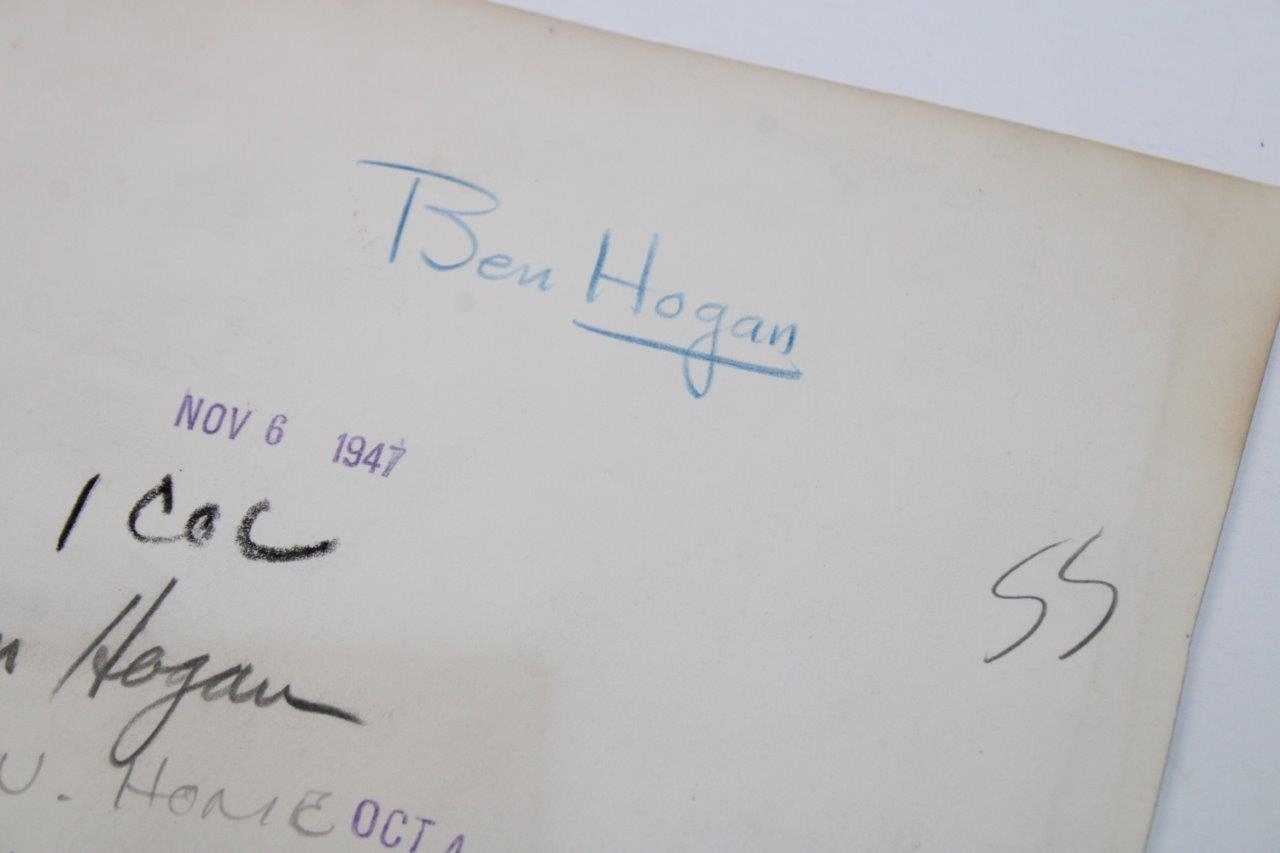 Ben Hogan
NOV 6 1947
1 Col
SS
n Hogan
. HOME OCT